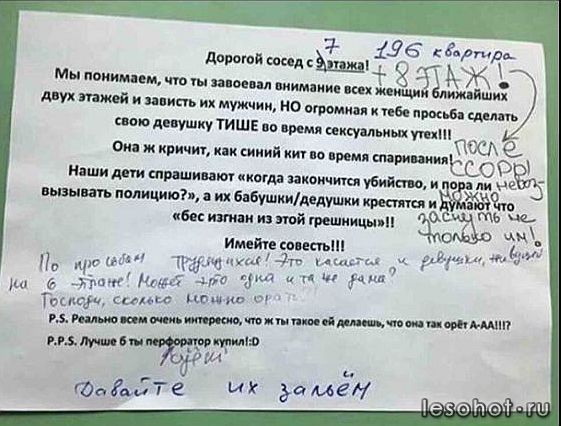 7 196 квартира
Дорогой сосед с 9 этажа!
+ 8 ЭТАЖ!
Мы понимаем, что ты завоевал внимание всех женщин ближайших
двух этажей и зависть их мужчин, НО огромная к тебе просьба сделать
свою девушку ТИШЕ во время сексуальных утех!!!
Она ж кричит, как синий кит во время спаривания!
ПОСЛЕ
ССОРЫ
Наши дети спрашивают «когда закончится убийство, и пора ли
вызывать полицию?», а их бабушки/дедушки крестятся и думают что
«бес изгнан из этой грешницы»!!
невоз-
можно
заснуть не
только им!
Имейте совесть!!!
По просьбам трудящихся! Это касается и девушки, живущей
на 6 этаже! Может это одна и та же дама?
Господи, сколько можно орать
P.S. Реально всем очень интересно, что ж ты такое ей делаешь, что она так орёт А-АА!!!?
P.P.S. Лучше б ты перфоратор купил!:D
Давайте их зальём
lesohot.ru